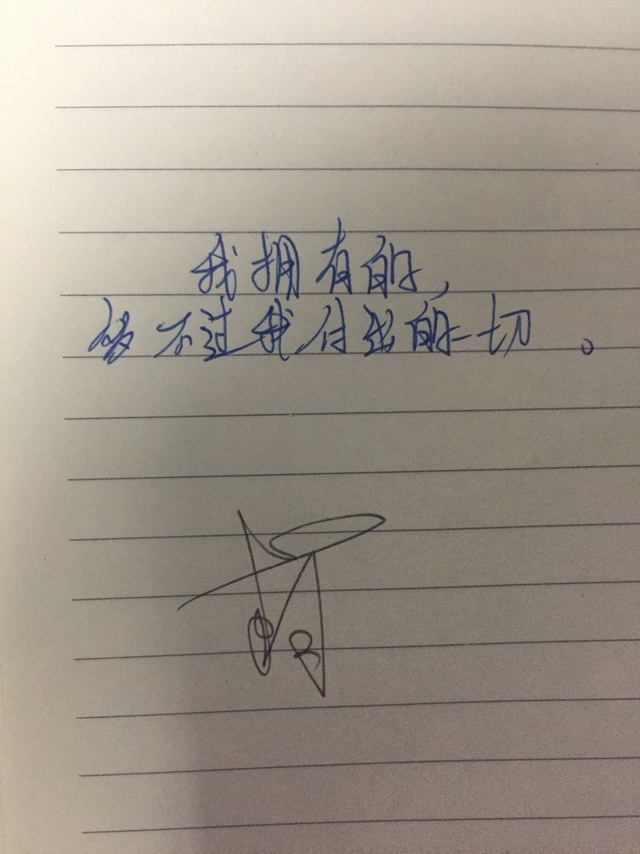 我拥有的,
不过我付出的一切。